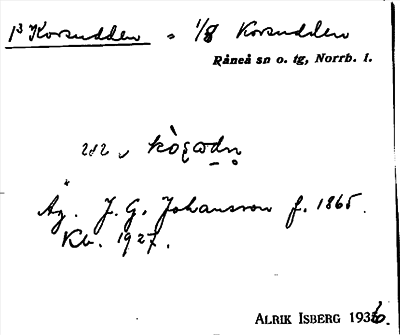 1³ Korsudden = 1/8 Korsudden
Råneå sn o. tg, Norrb. l.
212
Äg. J. G. Johansson f. 1865.
Kb. 1927.
ALRIK ISBERG 1936.